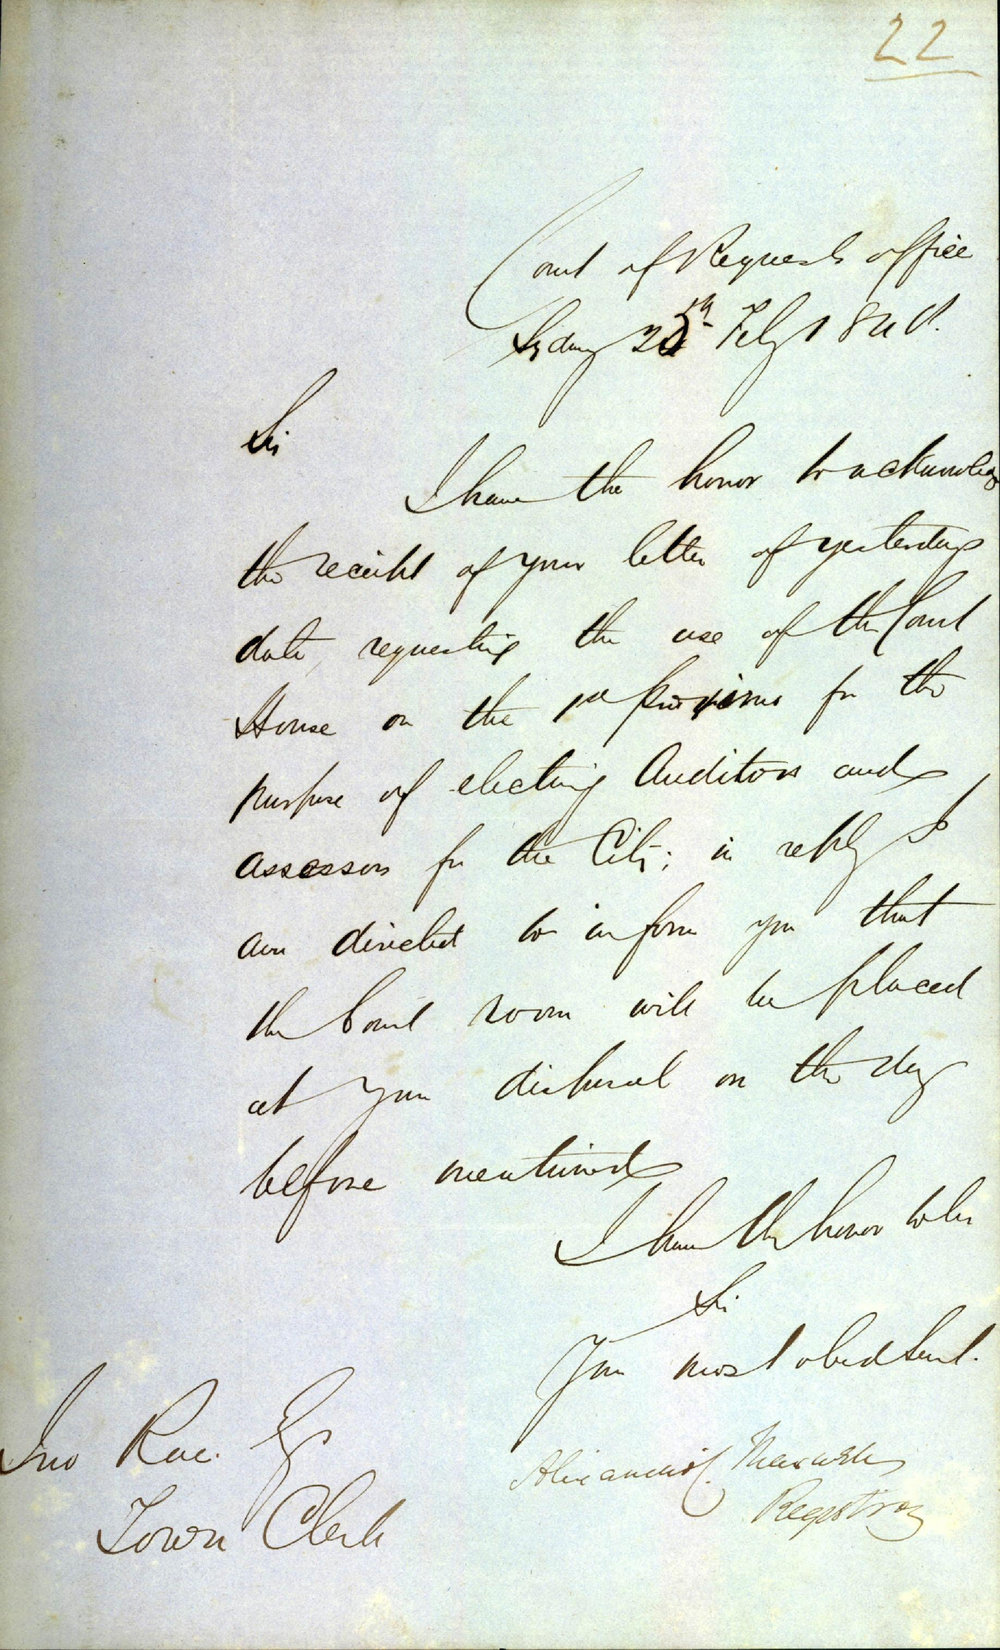 22
Court of Requests office
Sydney 25th Feby 184
Sir
I have the honor to acknowledge
the receipt of your letter of yesterdays
date, requesting the use of the Court
House on the 1st proximo for the
purpose of electing Auditors and
assessors for the City; in reply I
am directed to inform you that
the Court room will be placed
at your disposal on the day
before mentioned
I have the honor to be
Sir
Your most obed Servt.
Alexander C. Maxwell
Registrar
Jno Rae. Esq
Town Clerk